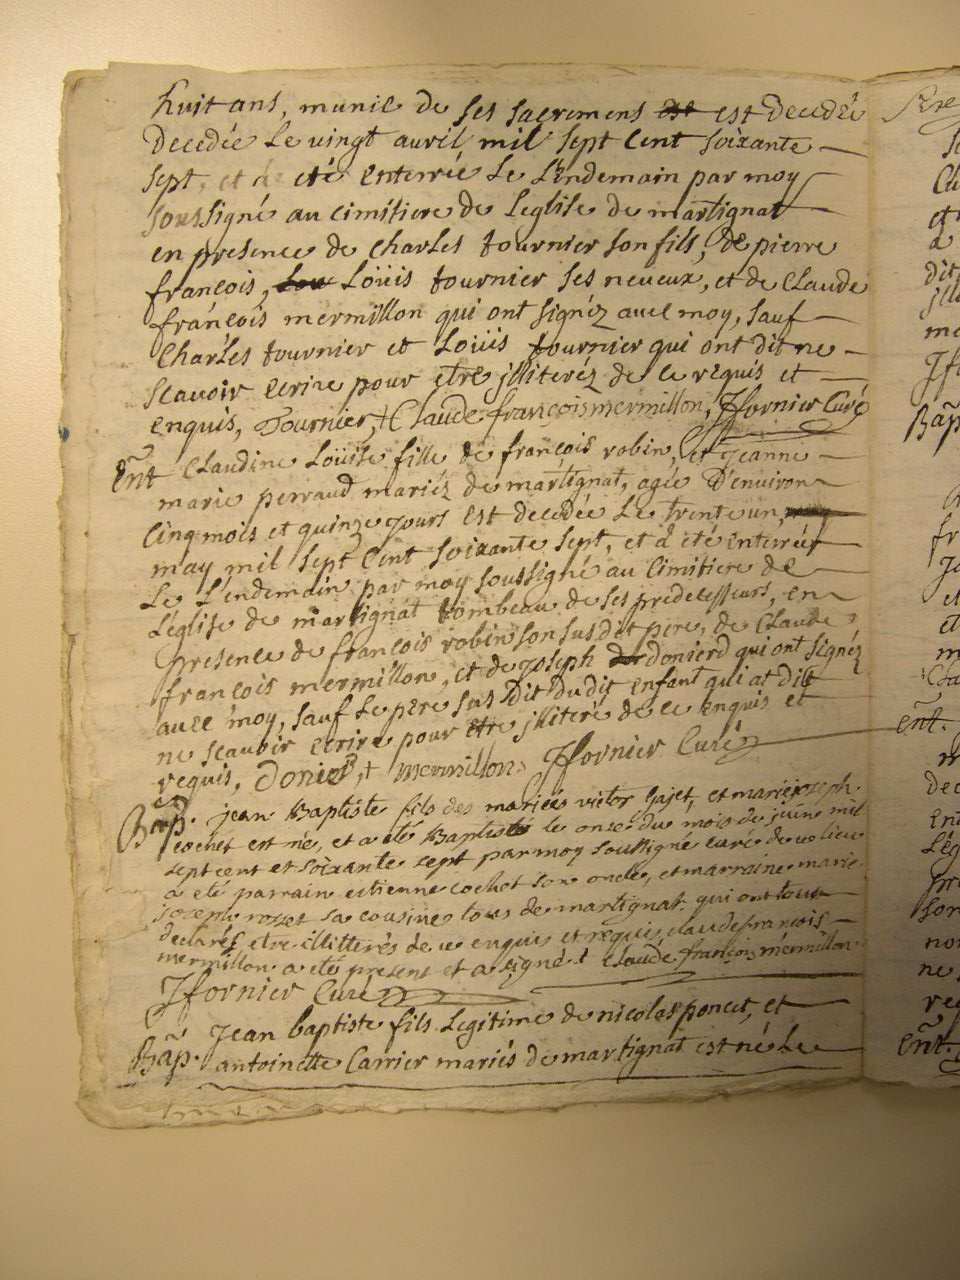 huit ans, munie de ses sacremens est decedée
Decedée Le vingt avril mil sept Cent soixante
sept, et été Enterrée Le L'endemain par moy
soussigné au cimitiere de Leglise de martignat
en presence de Charles tournier son fils, de pierre
françois, Loüis tournier ses neveux, et de Claude
françois mermillon qui ont signéz avec moy, sauf
Charles tournier et Loüis tournier qui ont dit ne
scavoir ecrire pour etre jlliterez de ce requis et
enquis, Tournier, + Claude françois mermillon, Jfornier Curé
Ent Claudine Loüise fille de françois robin, et jeanne
marie perraud mariéz de martignat, agée D'environ
Cinq mois et quinze jours est decedée Le trente un
may mil sept Cent soixante sept, et à été enterrée
Le L'endemain par moy soussigné au Cimitiere de
Léglise de martignat tombeau de ses predecesseurs, en
presence de françois robin son susdit pere, de Claude
françois mermillon, et de joseph donierd qui ont signéz
avec moy, sauf Le pere sus Dit Dudit enfant qui at dit
ne scavoir ecrire pour etre jlliteré de ce enquis et
requis, Donierd, + mermillon, Jfornier Curé
Bap. jean Baptiste fils des mariés victor Gajet, et marie joseph
cochet est né, et a été Baptisté le onze du mois de juin mil
sept cent et soixante sept par moy soussigné curé de ce lieu
a été parrain estienne cochet son oncle, et marraine marie
joseph rozet sa cousine tous de martignat qui ont tous
declarés etre illitterés de ce enquis et requis, claude françois
mermillon a été present et a signé + Claude françois mermillon
Jfornier Curé
Bap. Jean baptiste fils Legitime de nicolas poncet, et
antoinette Carrier mariés de martignat est né Le
Ent.
Ent.